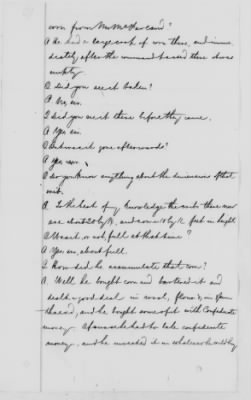 corn from Mr. McHar card?
A He had a large crib of corn there, and imme
diately after the command passed there it was
empty.
Q Did you see it taken?
A No, sir.
Q Did you see it there before they came.
A Yes sir.
Q And was it gone afterwards?
A Yes, sir.
Q Do you know anything about the dimensions of that
crib.
A. To the best of my knowledge the crib there now
are about 20 by 18, and some 10 by 12 feet in height
Q Was it, or not, full at that time?
A Yes sir, about full.
Q How did he accumulate that corn?
A. Well he bought corn and bartered it and
dealt a good deal in wool, flour &, on
hand, and he bought some of it with Confederate
money. A man who had to take confederate
money, and he invested it in whatever he could buy